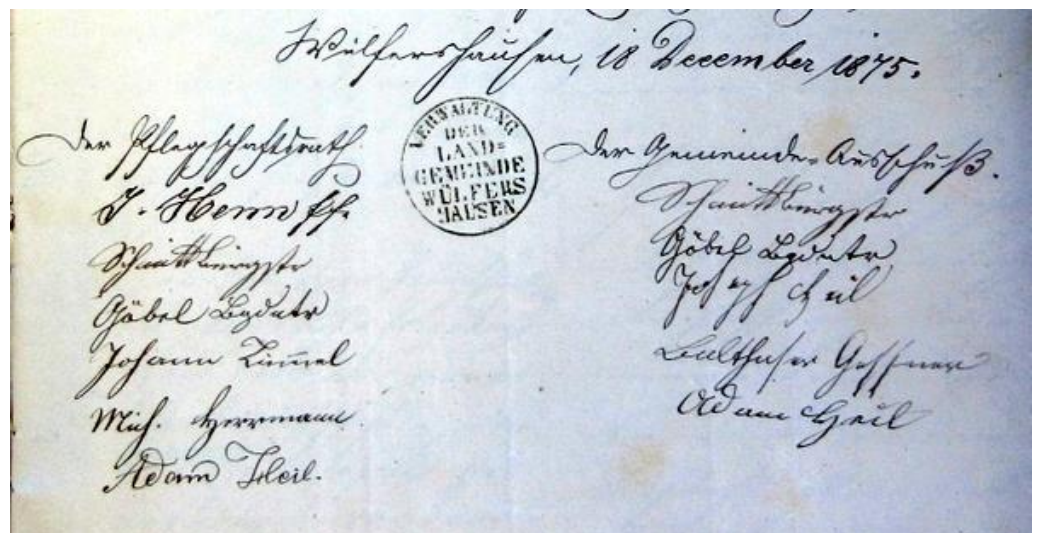 Wülfershausen, 18 December 1875.
Der Pflegschaftsrath.
J. Henn Pfr.
Schmitt Bürgstr
Göbel Bgdntr
Johann Kümmel
Mich. Herrmann.
Adam Heil.
VERWALTUNG
DER
LAND=
GEMEINDE
WÜLFERS
HAUSEN
Der Gemeinde-Ausschuß.
Schmitt Bürgstr
Göbel Bgdntr
Joseph Heil
Balthasar Geßner
Adam Heil